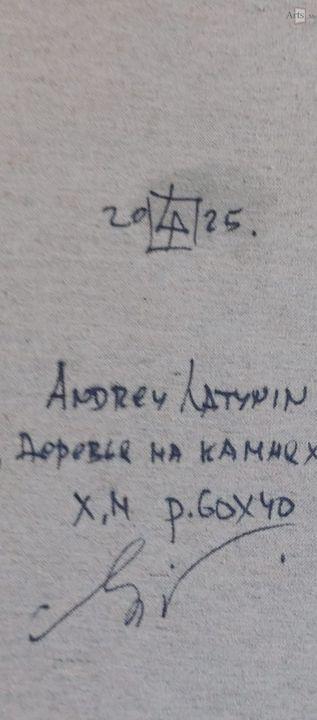 Arts
20 LA 25.
ANDREY LATYNIN
ДЕРЕВЬЯ НА КАМНЯХ
Х,М р.60Х40